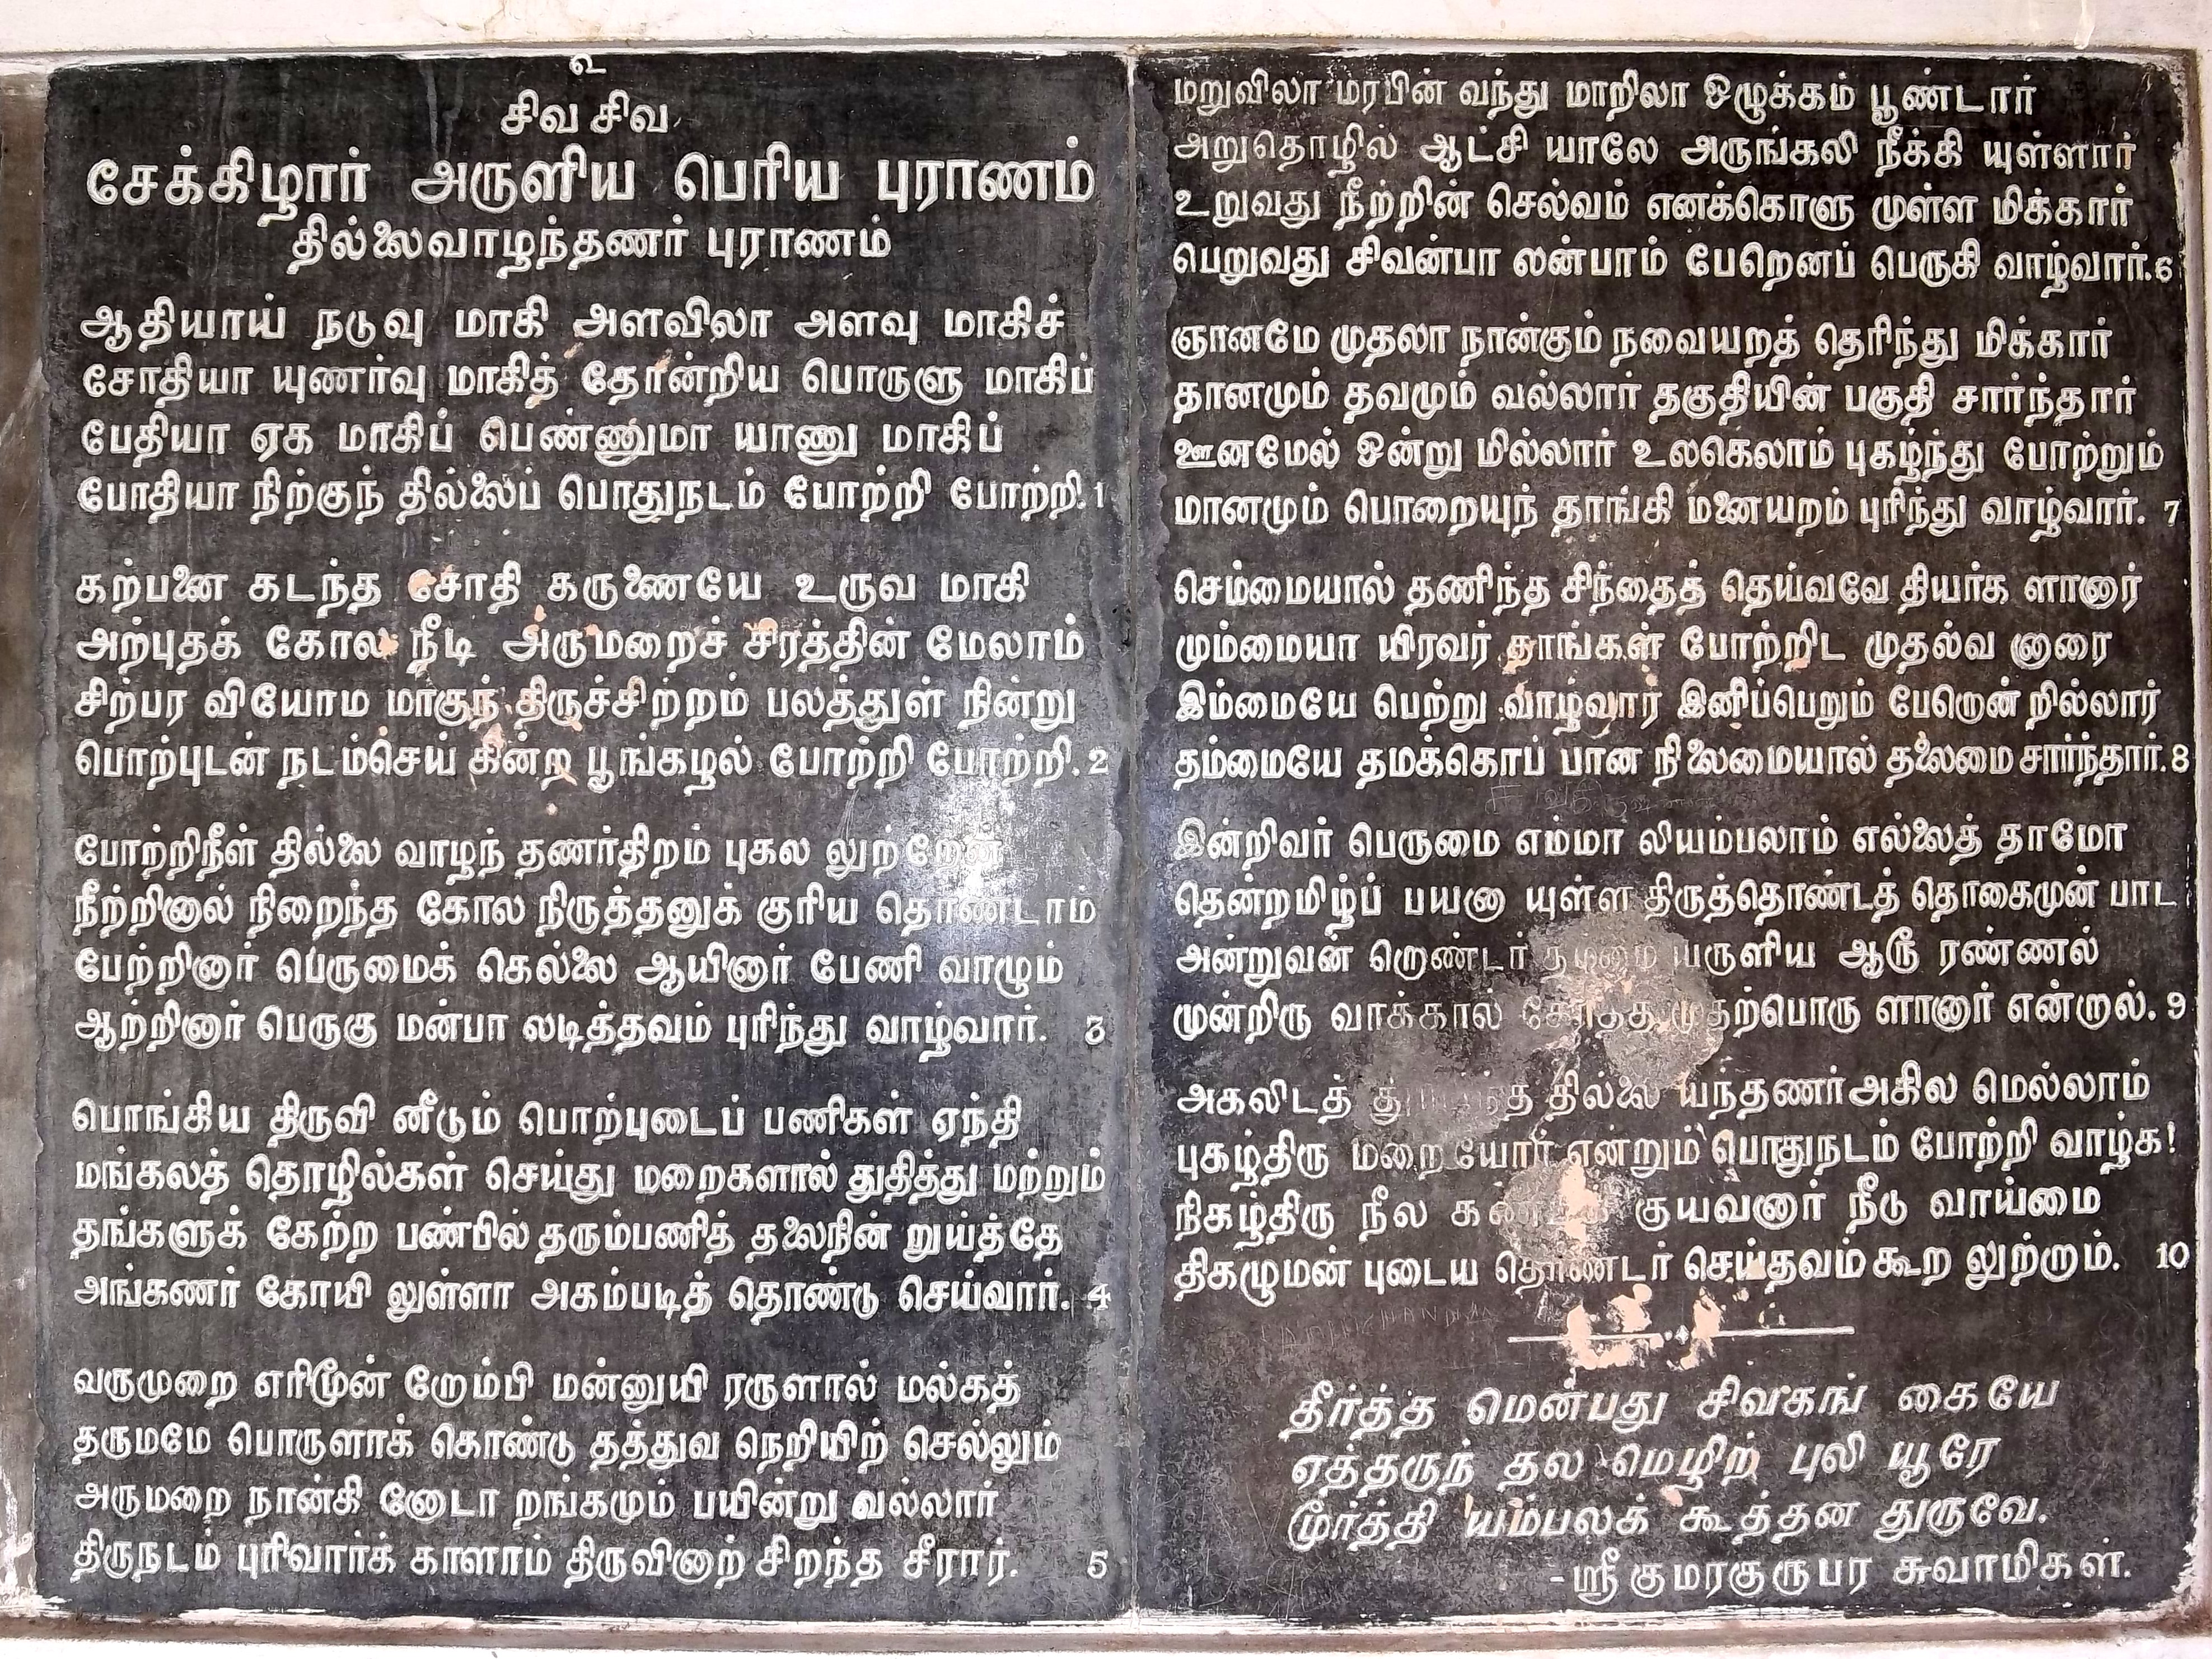 உ
சிவ சிவ
சேக்கிழார் அருளிய பெரிய புராணம்
தில்லைவாழந்தணர் புராணம்
ஆதியாய் நடுவு மாகி அளவிலா அளவு மாகிச்
சோதியா யுணர்வு மாகித் தோன்றிய பொருளு மாகிப்
பேதியா ஏக மாகிப் பெண்ணுமா யாணு மாகிப்
போதியா நிற்குந் தில்லைப் பொதுநடம் போற்றி போற்றி. 1
கற்பனை கடந்த சோதி கருணையே உருவ மாகி
அற்புதக் கோல நீடி அருமறைச் சிரத்தின் மேலாம்
சிற்பர வியோம மாகுந் திருச்சிற்றம் பலத்துள் நின்று
பொற்புடன் நடம்செய் கின்ற பூங்கழல் போற்றி போற்றி. 2
போற்றிநீள் தில்லை வாழந் தணர்திறம் புகல லுற்றேன்
நீற்றினால் நிறைந்த கோல நிருத்தனுக் குரிய தொண்டாம்
பேற்றினார் பெருமைக் கெல்லை ஆயினார் பேணி வாழும்
ஆற்றினார் பெருகு மன்பா லடித்தவம் புரிந்து வாழ்வார். 3
பொங்கிய திருவி னீடும் பொற்புடைப் பணிகள் ஏந்தி
மங்கலத் தொழில்கள் செய்து மறைகளால் துதித்து மற்றும்
தங்களுக் கேற்ற பண்பில் தரும்பணித் தலைநின் றுய்த்தே
அங்கணர் கோயி லுள்ளா அகம்படித் தொண்டு செய்வார். 4
வருமுறை எரிமூன் றோம்பி மன்னுயி ரருளால் மல்கத்
தருமமே பொருளாக் கொண்டு தத்துவ நெறியிற் செல்லும்
அருமறை நான்கி னோடா றங்கமும் பயின்று வல்லார்
திருநடம் புரிவார்க் காளாம் திருவினாற் சிறந்த சீரார். 5
மறுவிலா மரபின் வந்து மாறிலா ஒழுக்கம் பூண்டார்
அறுதொழில் ஆட்சி யாலே அருங்கலி நீக்கி யுள்ளார்
உறுவது நீற்றின் செல்வம் எனக்கொளு முள்ள மிக்கார்
பெறுவது சிவன்பா லன்பாம் பேறெனப் பெருகி வாழ்வார். 6
ஞானமே முதலா நான்கும் நவையறத் தெரிந்து மிக்கார்
தானமும் தவமும் வல்லார் தகுதியின் பகுதி சார்ந்தார்
ஊனமேல் ஒன்று மில்லார் உலகெலாம் புகழ்ந்து போற்றும்
மானமும் பொறையுந் தாங்கி மனையறம் புரிந்து வாழ்வார். 7
செம்மையால் தணிந்த சிந்தைத் தெய்வவே தியர்க ளானார்
மும்மையா யிரவர் தாங்கள் போற்றிட முதல்வ னாரை
இம்மையே பெற்று வாழ்வார் இனிப்பெறும் பேறொன் றில்லார்
தம்மையே தமக்கொப் பான நிலைமையால் தலைமை சார்ந்தார். 8
இன்றிவர் பெருமை எம்மா லியம்பலாம் எல்லைத் தாமோ
தென்றமிழ்ப் பயனா யுள்ள திருத்தொண்டத் தொகைமுன் பாட
அன்றுவன் றொண்டர் தம்மை யருளிய ஆரூ ரண்ணல்
முன்றிரு வாக்கால் கோத்த முதற்பொரு ளானார் என்றால். 9
அகலிடத் தில்லை யந்தணர் அகில மெல்லாம்
புகழ்திரு மறையோர் என்றும் பொதுநடம் போற்றி வாழ்க!
நிகழ்திரு நீல குயவனார் நீடு வாய்மை
திகழுமன் புடைய தொண்டர் செய்தவம் கூற லுற்றாம். 10
தீர்த்த மென்பது சிவகங் கையே
ஏத்தருந் தல மெழிற் புலி யூரே
மூர்த்தி யம்பலக் கூத்தன துருவே.
-ஸ்ரீ குமரகுருபர சுவாமிகள்.